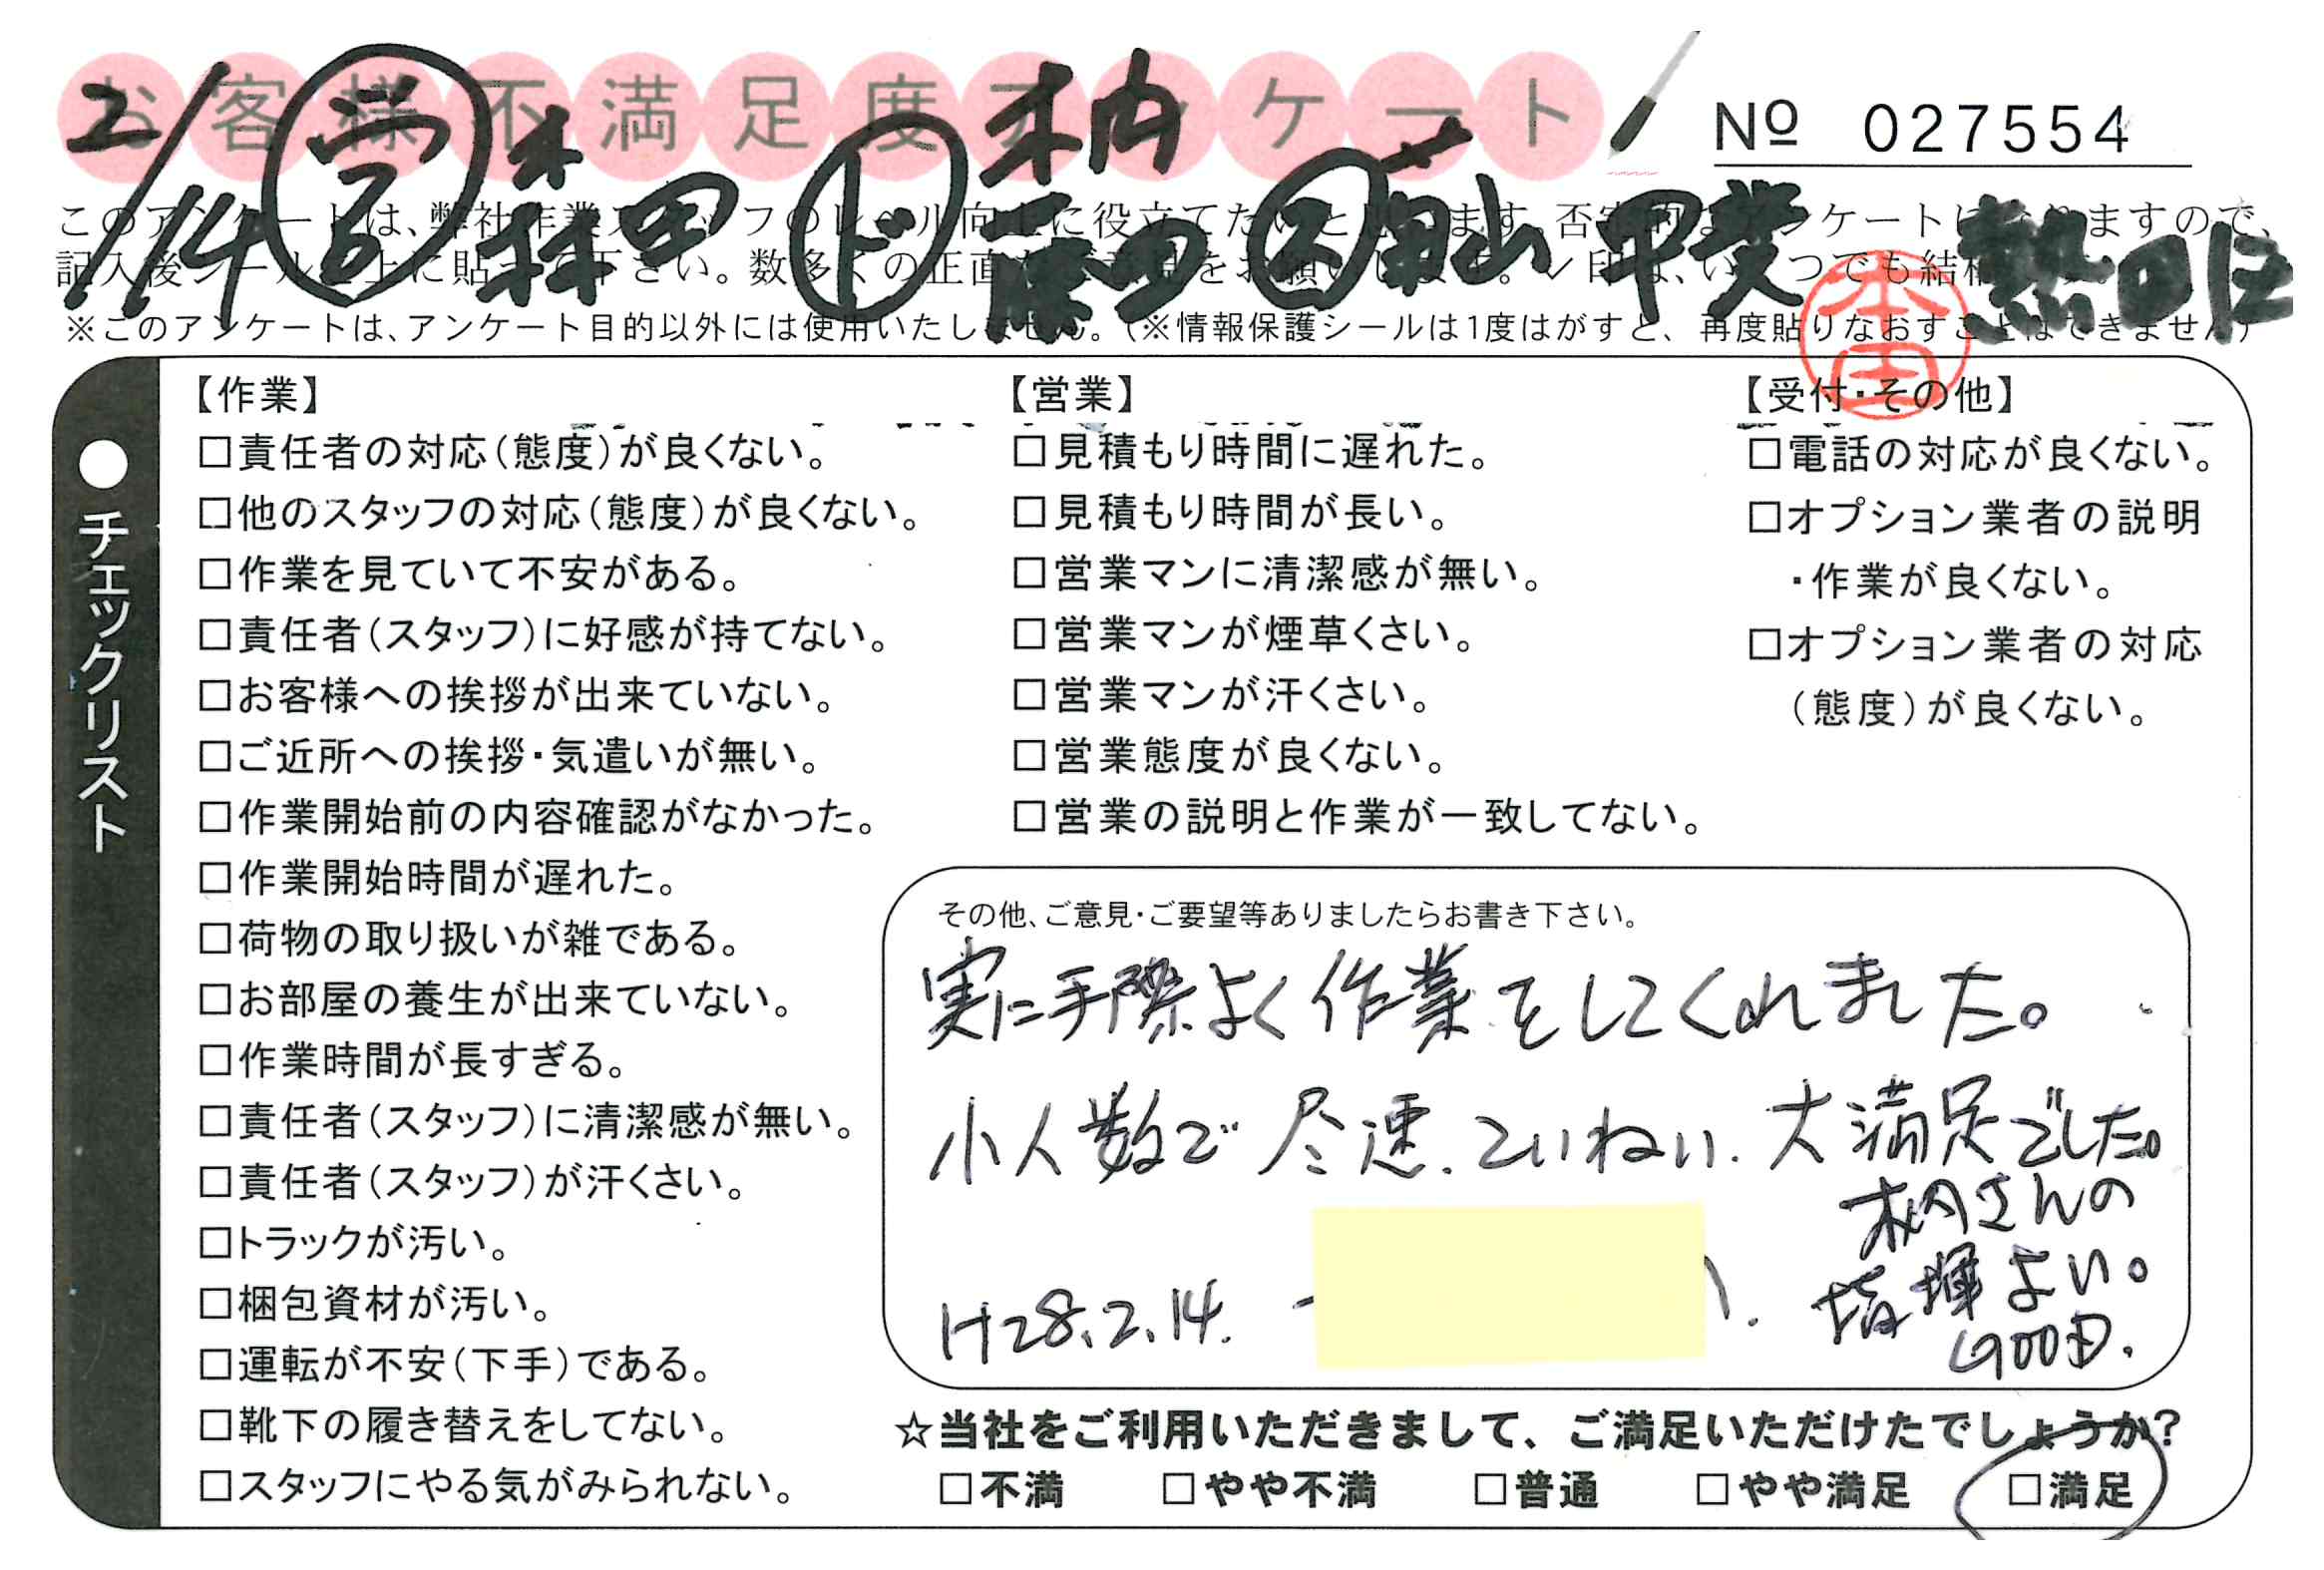 お客様不満足度アンケート
№ 027554
2/14 営 森田 ド 柄 藤田 甲斐 熱田区
このアンケートは、弊社作業スタッフのレベル向上に役立てたいと思います。否定的なアンケートになりますので、
記入後シールを上に貼って下さい。数多くの正直なご意見をお願いします。✓印は、いくつでも結構です。
※このアンケートは、アンケート目的以外には使用いたしません。(※情報保護シールは1度はがすと、再度貼りなおすことはできません)
本田
●チェックリスト
【作業】
□責任者の対応(態度)が良くない。
□他のスタッフの対応(態度)が良くない。
□作業を見ていて不安がある。
□責任者(スタッフ)に好感が持てない。
□お客様への挨拶が出来ていない。
□ご近所への挨拶・気遣いが無い。
□作業開始前の内容確認がなかった。
□作業開始時間が遅れた。
□荷物の取り扱いが雑である。
□お部屋の養生が出来ていない。
□作業時間が長すぎる。
□責任者(スタッフ)に清潔感が無い。
□責任者(スタッフ)が汗くさい。
□トラックが汚い。
□梱包資材が汚い。
□運転が不安(下手)である。
□靴下の履き替えをしてない。
□スタッフにやる気がみられない。
【営業】
□見積もり時間に遅れた。
□見積もり時間が長い。
□営業マンに清潔感が無い。
□営業マンが煙草くさい。
□営業マンが汗くさい。
□営業態度が良くない。
□営業の説明と作業が一致してない。
【受付・その他】
□電話の対応が良くない。
□オプション業者の説明
・作業が良くない。
□オプション業者の対応
(態度)が良くない。
その他、ご意見・ご要望等ありましたらお書き下さい。
実に手際よく作業をしてくれました。
小人数で尽速、ていねい、大満足でした。
柄さんの
指揮よい。
H28.2.14.
☆当社をご利用いただきまして、ご満足いただけたでしょうか?
□不満 □やや不満 □普通 □やや満足 □満足